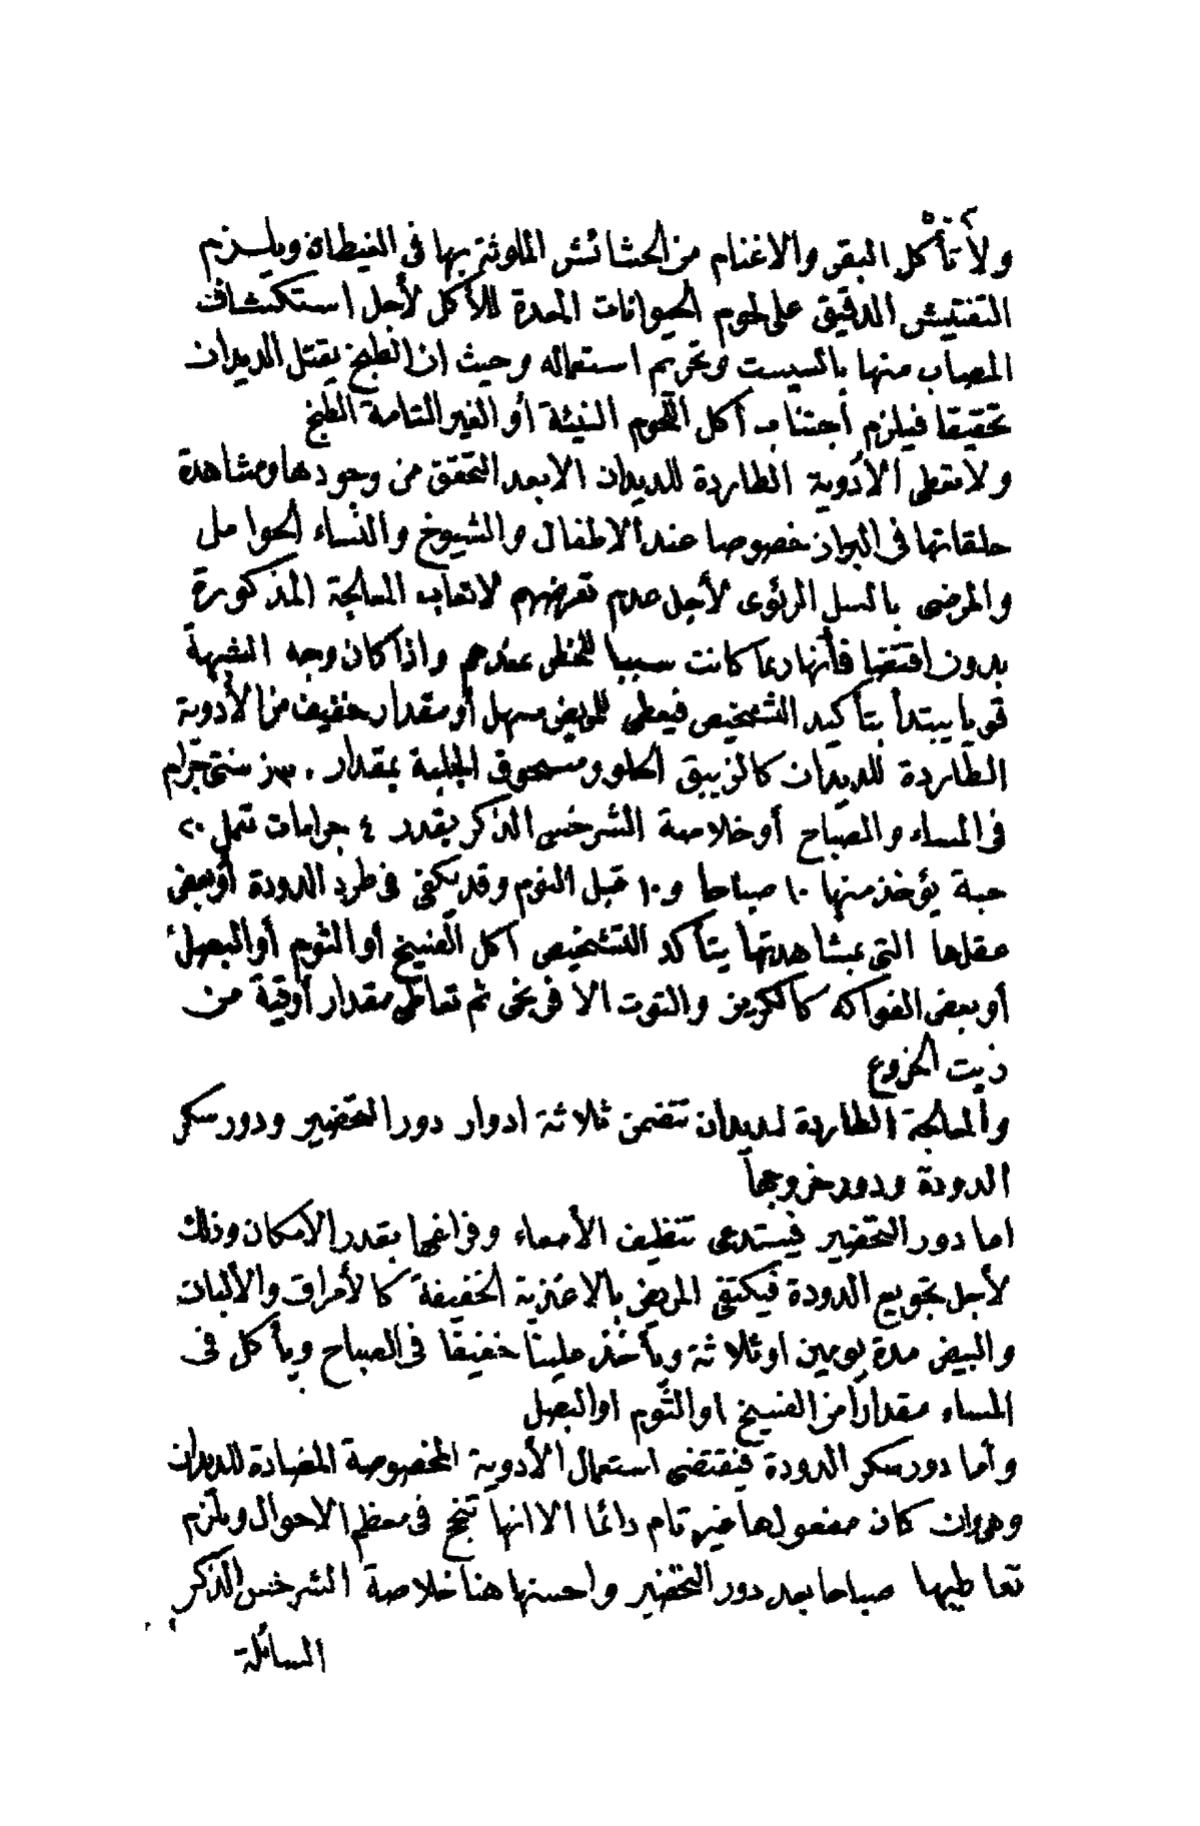 ولا تأكل البقر والاغنام من الحشائش الملوثة بها فى الغيطان ويلزم
التفتيش الدقيق على لحوم الحيوانات المعدة للأكل لأجل استكشاف
المصاب منها بالسيست وتحريم استعماله وحيث ان الطبخ يقتل الديدان
تحقيقا فيلزم أجتناب أكل اللحوم النيئة أو الغير التامة الطبخ
ولا تعطى الأدوية الطاردة للديدان الا بعد التحقق من وجودها ومشاهدة
حلقاتها فى البراز خصوصا عند الاطفال والشيوخ والنساء الحوامل
والمرضى بالسل الرئوى لأجل عدم تعرضهم لاتعاب المعالجة المذكورة
بدون اقتضا فأنها ربما كانت سببا للخطر عندهم واذا كان وجه الشبهة
قويا يبتدأ بتأكيد التشخيص فيعطى للمريض مسهل أو مقدار خفيف من الأدوية
الطاردة للديدان كالزيبق الحلو ومسحوق الجلبة بمقدار ٣٠ر سنتجرام
فى المساء والصباح أو خلاصة الشرخس الذكر بقدر ٤ جرامات تعمل ٢٠
حبة يؤخذ منها ١٠ صباحا و١٠ قبل النوم وقد يكفى فى طرد الدودة أو بعض
عقلها التى بمشاهدتها يتأكد التشخيص أكل الفسيخ او الثوم أو البصل
أو بعض الفواكه كالكريز والتوت الافرنجى ثم تعاطى مقدار أوقية من
زيت الخروع
والمعالجة الطاردة لديدان تتضمن ثلاثة ادوار دور التحضير ودور سكر
الدودة ودور خروجها
اما دور التحضير فيستدعى تنظيف الأمعاء وفراغها بقدر الامكان وذلك
لأجل تجويع الدودة فيكتفى المريض بالاغذية الخفيفة كالأمراق والألبان
والبيض مدة يومين او ثلاثة ويأخذ ملينا خفيفا فى الصباح ويأكل فى
المساء مقداراً من الفسيخ او الثوم او البصل
وأما دور سكر الدودة فيقتضى استعمال الأدوية المخصوصة المضادة للديدان
وهى وان كان مفعولها غير تام دائما الا انها تنجح فى معظم الاحوال ويلزم
تعاطيها صباحا بعد دور التحضير واحسنها هنا خلاصة الشرخس الذكر
السائلة